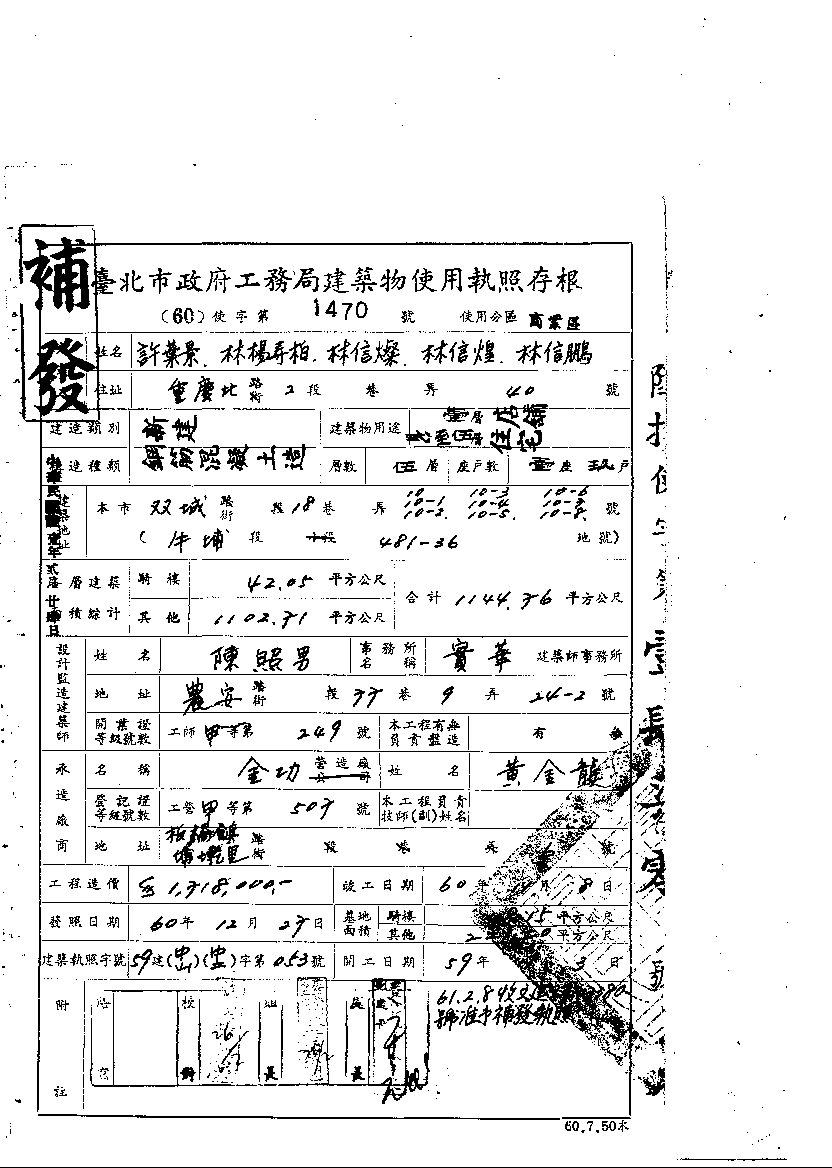 補發
臺北市政府工務局建築物使用執照存根
(60)使字第 1470 號 使用分區 商業區
姓名 許葉景．林楊尋柏．林信燦．林信煌．林信鵬
住址 重慶北路街 2段 巷 弄 40 號
建造類別 新建 建築物用途 壹層店舖 住宅
造種類 鋼筋混凝土造 層數 伍層 座戶數 壹座 玖戶
建築地址 本市 双城路街 段 18巷 弄 10 10-1 10-2. 10-3 10-4 10-5. 10-6 10-7 10-8. 號
( 牛埔 段 小段 481-36 地號)
層建築 騎樓 42.05 平方公尺 合計 1144.36 平方公尺
積綜計 其他 1102.31 平方公尺
設計監造建築師 姓名 陳照男 事務所名稱 實華 建築師事務所
地址 農安路街 段 巷 9 弄 24-2 號
開業證等級號數 工師甲等第 249 號 本工程有無員責監造 有
承造廠商 名稱 金功 營造廠公司 姓名 黃金
登記證等級號數 工營甲等第 507 號 本工程員責技師(副)姓名
地址 板橋鎮 埔墘里 路街 段 巷 弄 號
工程造價 1,318,000,- 竣工日期 60年 月 8日
發照日期 60年 12月 27日 基地面積 騎樓 平方公尺 其他 平方公尺
建築執照字號 59建( )( )字第 053號 開工日期 59年 3日
附註 校對
61.2.8收
號准予補發執照
60.7.50本